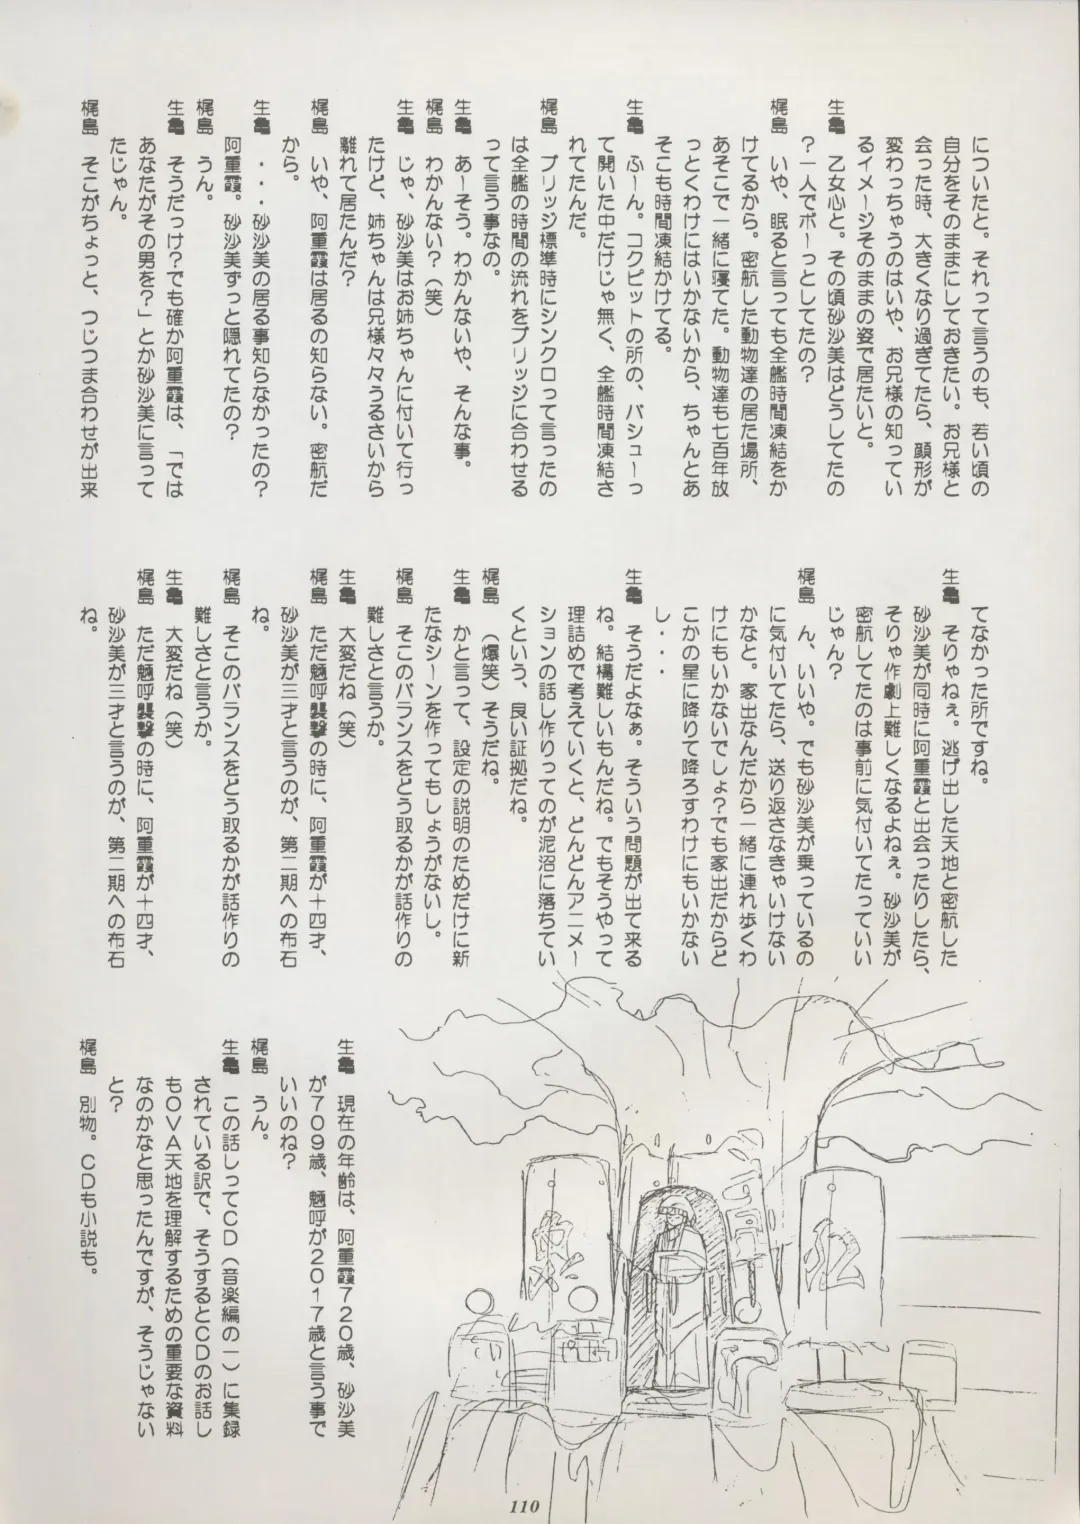 についたと。それって言うのも、若い頃の
自分をそのままにしておきたい。お兄様と
会った時、大きくなり過ぎてたら、顔形が
変わっちゃうのはいや、お兄様の知ってい
るイメージそのままの姿で居たいと。
生亀 乙女心と。その頃砂沙美はどうしてたの
？一人でボーっとしてたの？
梶島 いや、眠ると言っても全艦時間凍結をか
けてるから。密航した動物達の居た場所、
あそこで一緒に寝てた。動物達も七百年放
っとくわけにはいかないから、ちゃんとあ
そこも時間凍結かけてる。
生亀 ふーん。コクピットの所の、パシューっ
て開いた中だけじゃ無く、全艦時間凍結さ
れてたんだ。
梶島 ブリッジ標準時にシンクロって言ったの
は全艦の時間の流れをブリッジに合わせる
って言う事なの。
生亀 あーそう。わかんないや、そんな事。
梶島 わかんない？（笑）
生亀 じゃ、砂沙美はお姉ちゃんに付いて行っ
たけど、姉ちゃんは兄様々々うるさいから
離れて居たんだ？
梶島 いや、阿重霞は居るの知らない。密航だ
から。
生亀 ・・・砂沙美の居る事知らなかったの？
阿重霞。砂沙美ずっと隠れてたの？
梶島 うん。
生亀 そうだっけ？でも確か阿重霞は、「では
あなたがその男を？」とか砂沙美に言って
たじゃん。
梶島 そこがちょっと、つじつま合わせが出来
てなかった所ですね。
生亀 そりゃねぇ。逃げ出した天地と密航した
砂沙美が同時に阿重霞と出会ったりしたら、
そりゃ作劇上難しくなるよねぇ。砂沙美が
密航してたのは事前に気付いてたっていい
じゃん？
梶島 ん、いいや。でも砂沙美が乗っているの
に気付いてたら、送り返さなきゃいけない
かなと。家出なんだから一緒に連れ歩くわ
けにもいかないでしょ？でも家出だからど
こかの星に降りて降ろすわけにもいかない
し・・・
生亀 そうだよなぁ。そういう問題が出て来る
ね。結構難しいもんだね。でもそうやって
理詰めで考えていくと、どんどんアニメー
ションの話し作りってのが泥沼に落ちてい
くという、良い証拠だね。
梶島 （爆笑）そうだね。
生亀 かと言って、設定の説明のためだけに新
たなシーンを作ってもしょうがないし。
梶島 そこのバランスをどう取るかが話作りの
難しさと言うか。
生亀 大変だね（笑）
梶島 ただ魎呼襲撃の時に、阿重霞が十四才、
砂沙美が三才と言うのが、第二期への布石
ね。
梶島 そこのバランスをどう取るかが話作りの
難しさと言うか。
生亀 大変だね（笑）
梶島 ただ魎呼襲撃の時に、阿重霞が十四才、
砂沙美が三才と言うのが、第二期への布石
ね。
生亀 現在の年齢は、阿重霞７２０歳、砂沙美
が７０９歳、魎呼が２０１７歳と言う事で
いいのね？
梶島 うん。
生亀 この話しってＣＤ（音楽編の一）に集録
されている訳で、そうするとＣＤのお話し
もＯＶＡ天地を理解するための重要な資料
なのかなと思ったんですが、そうじゃない
と？
梶島 別物。ＣＤも小説も。
110